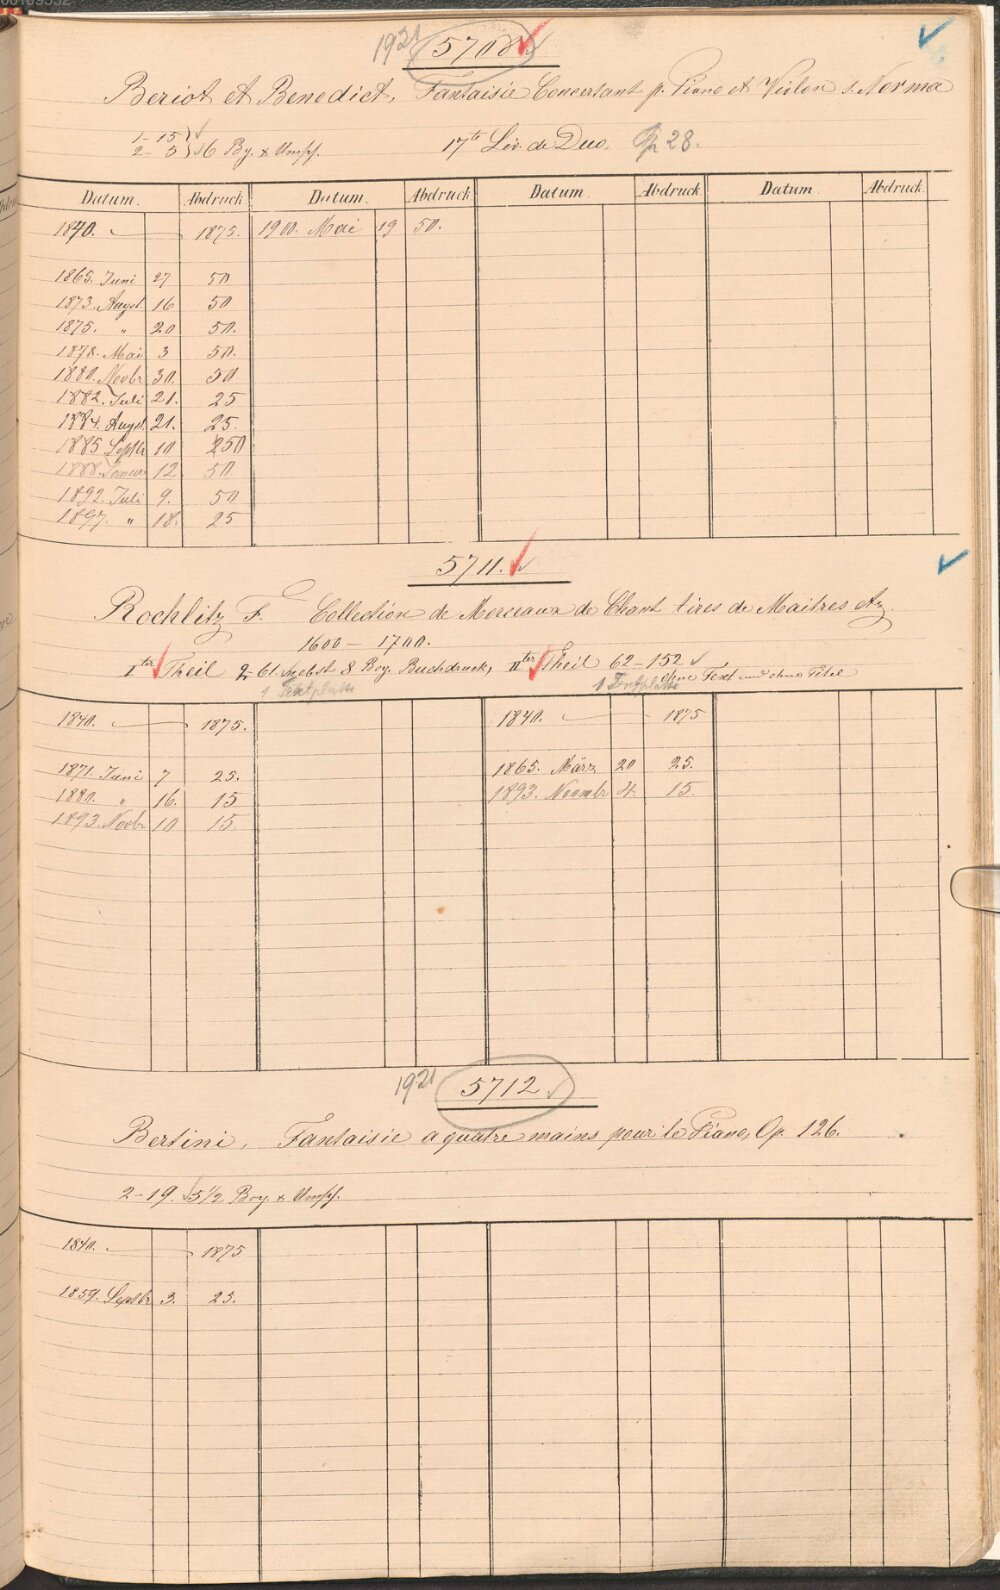 1921 5708.
Beriot et Benedict, Fantaisie Concertant p. Piano et Violon s. Norma
1-15
2-5 } 6 Bog. & Umschl. 17te Liv. de Duo. Op 28.
Datum. Abdruck Datum. Abdruck Datum. Abdruck Datum. Abdruck
1840. 1875. 1900. Mai 19 50.
1865. Juni 27 50
1873. August 16 50
1875. " 20 50.
1878. Mai 3 50.
1880. Novbr 30. 50
1882. Juli 21. 25
1884. August 21. 25.
1885 Septbr 10 250
1888. 12 50
1892. Juli 9. 50
1897. " 18. 25
5711.
Rochlitz F. Collection de Morceaux de Chant tires de Maitres etz.
1600 - 1700.
Iter Theil 2-61. nebst 8 Bog. Buchdruck, IIter Theil 62-152
1 Textplatte 1 Textplatte ohne Text und ohne Titel
1840. 1875. 1840. 1875
1871. Juni 7 25. 1865. März 20 25.
1880. " 16. 15 1893. Novmbr 4. 15.
1893. Novbr 10 15.
1921 5712.
Bertini, Fantaisie a quatre mains pour le Piano, Op. 126.
2-19. 5 1/2 Bog. & Umschl.
1840. 1875
1859. Septbr 3. 25.